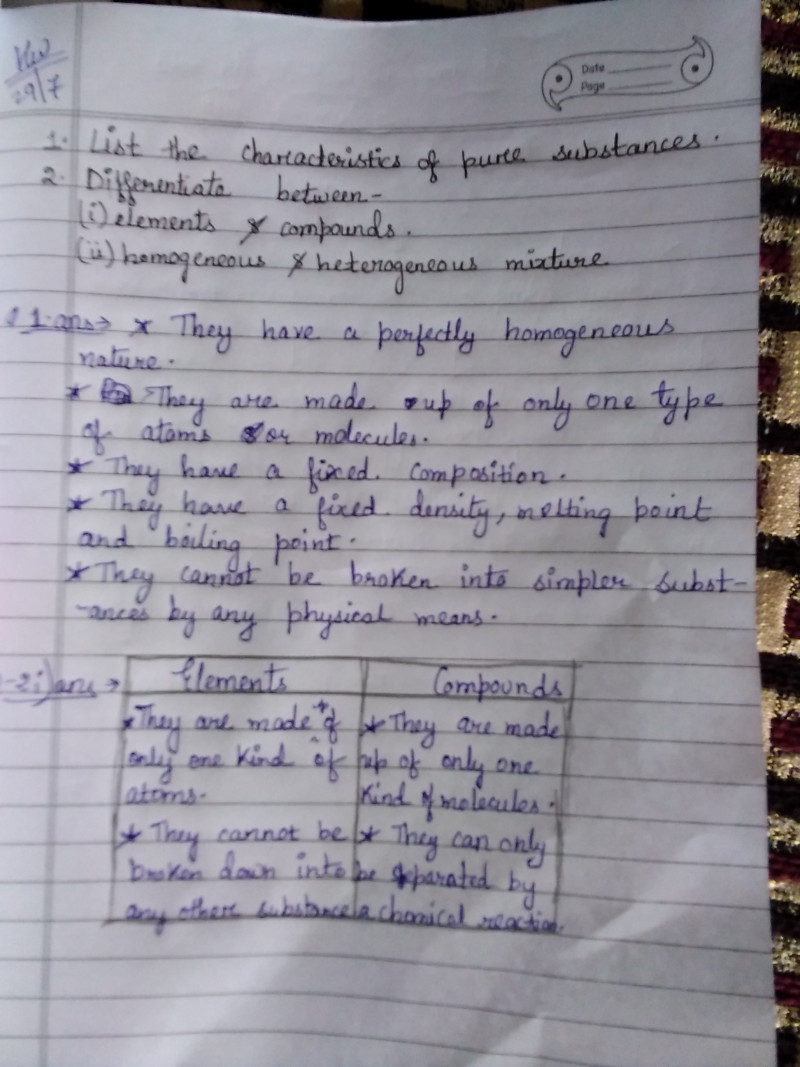 HW
29/7
Date
Page
1. List the characteristics of pure substances.
2. Differentiate between-
(i) elements & compounds.
(ii) homogeneous & heterogeneous mixture
1. ans→ * They have a perfectly homogeneous
nature.
* They are made up of only one type
of atoms or molecules.
* They have a fixed composition.
* They have a fixed density, melting point
and boiling point.
* They cannot be broken into simpler subst-
-ances by any physical means.
-2i) ans → Elements Compounds
* They are made of * They are made
only one kind of up of only one
atoms. kind of molecules.
* They cannot be * They can only
broken down into be separated by
any other substance a chemical reaction.